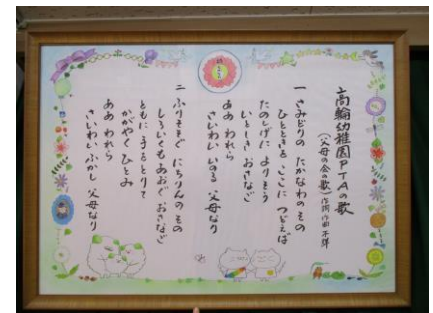 高輪幼稚園PTAの歌
(父母の会の歌) 作詞 作曲 不詳
一 さみどりの たかなわのその
ひとときを ここに つどえば
たのしげに よりそう
いとしき おさなご
ああ われら
さいわい いのる 父母なり
二 ふりそそぐ にちりんの その
しろいくも あおぐ おさなご
ともに 手をとりて
かがやく ひとみ
ああ われら
さいわい ふかし 父母なり